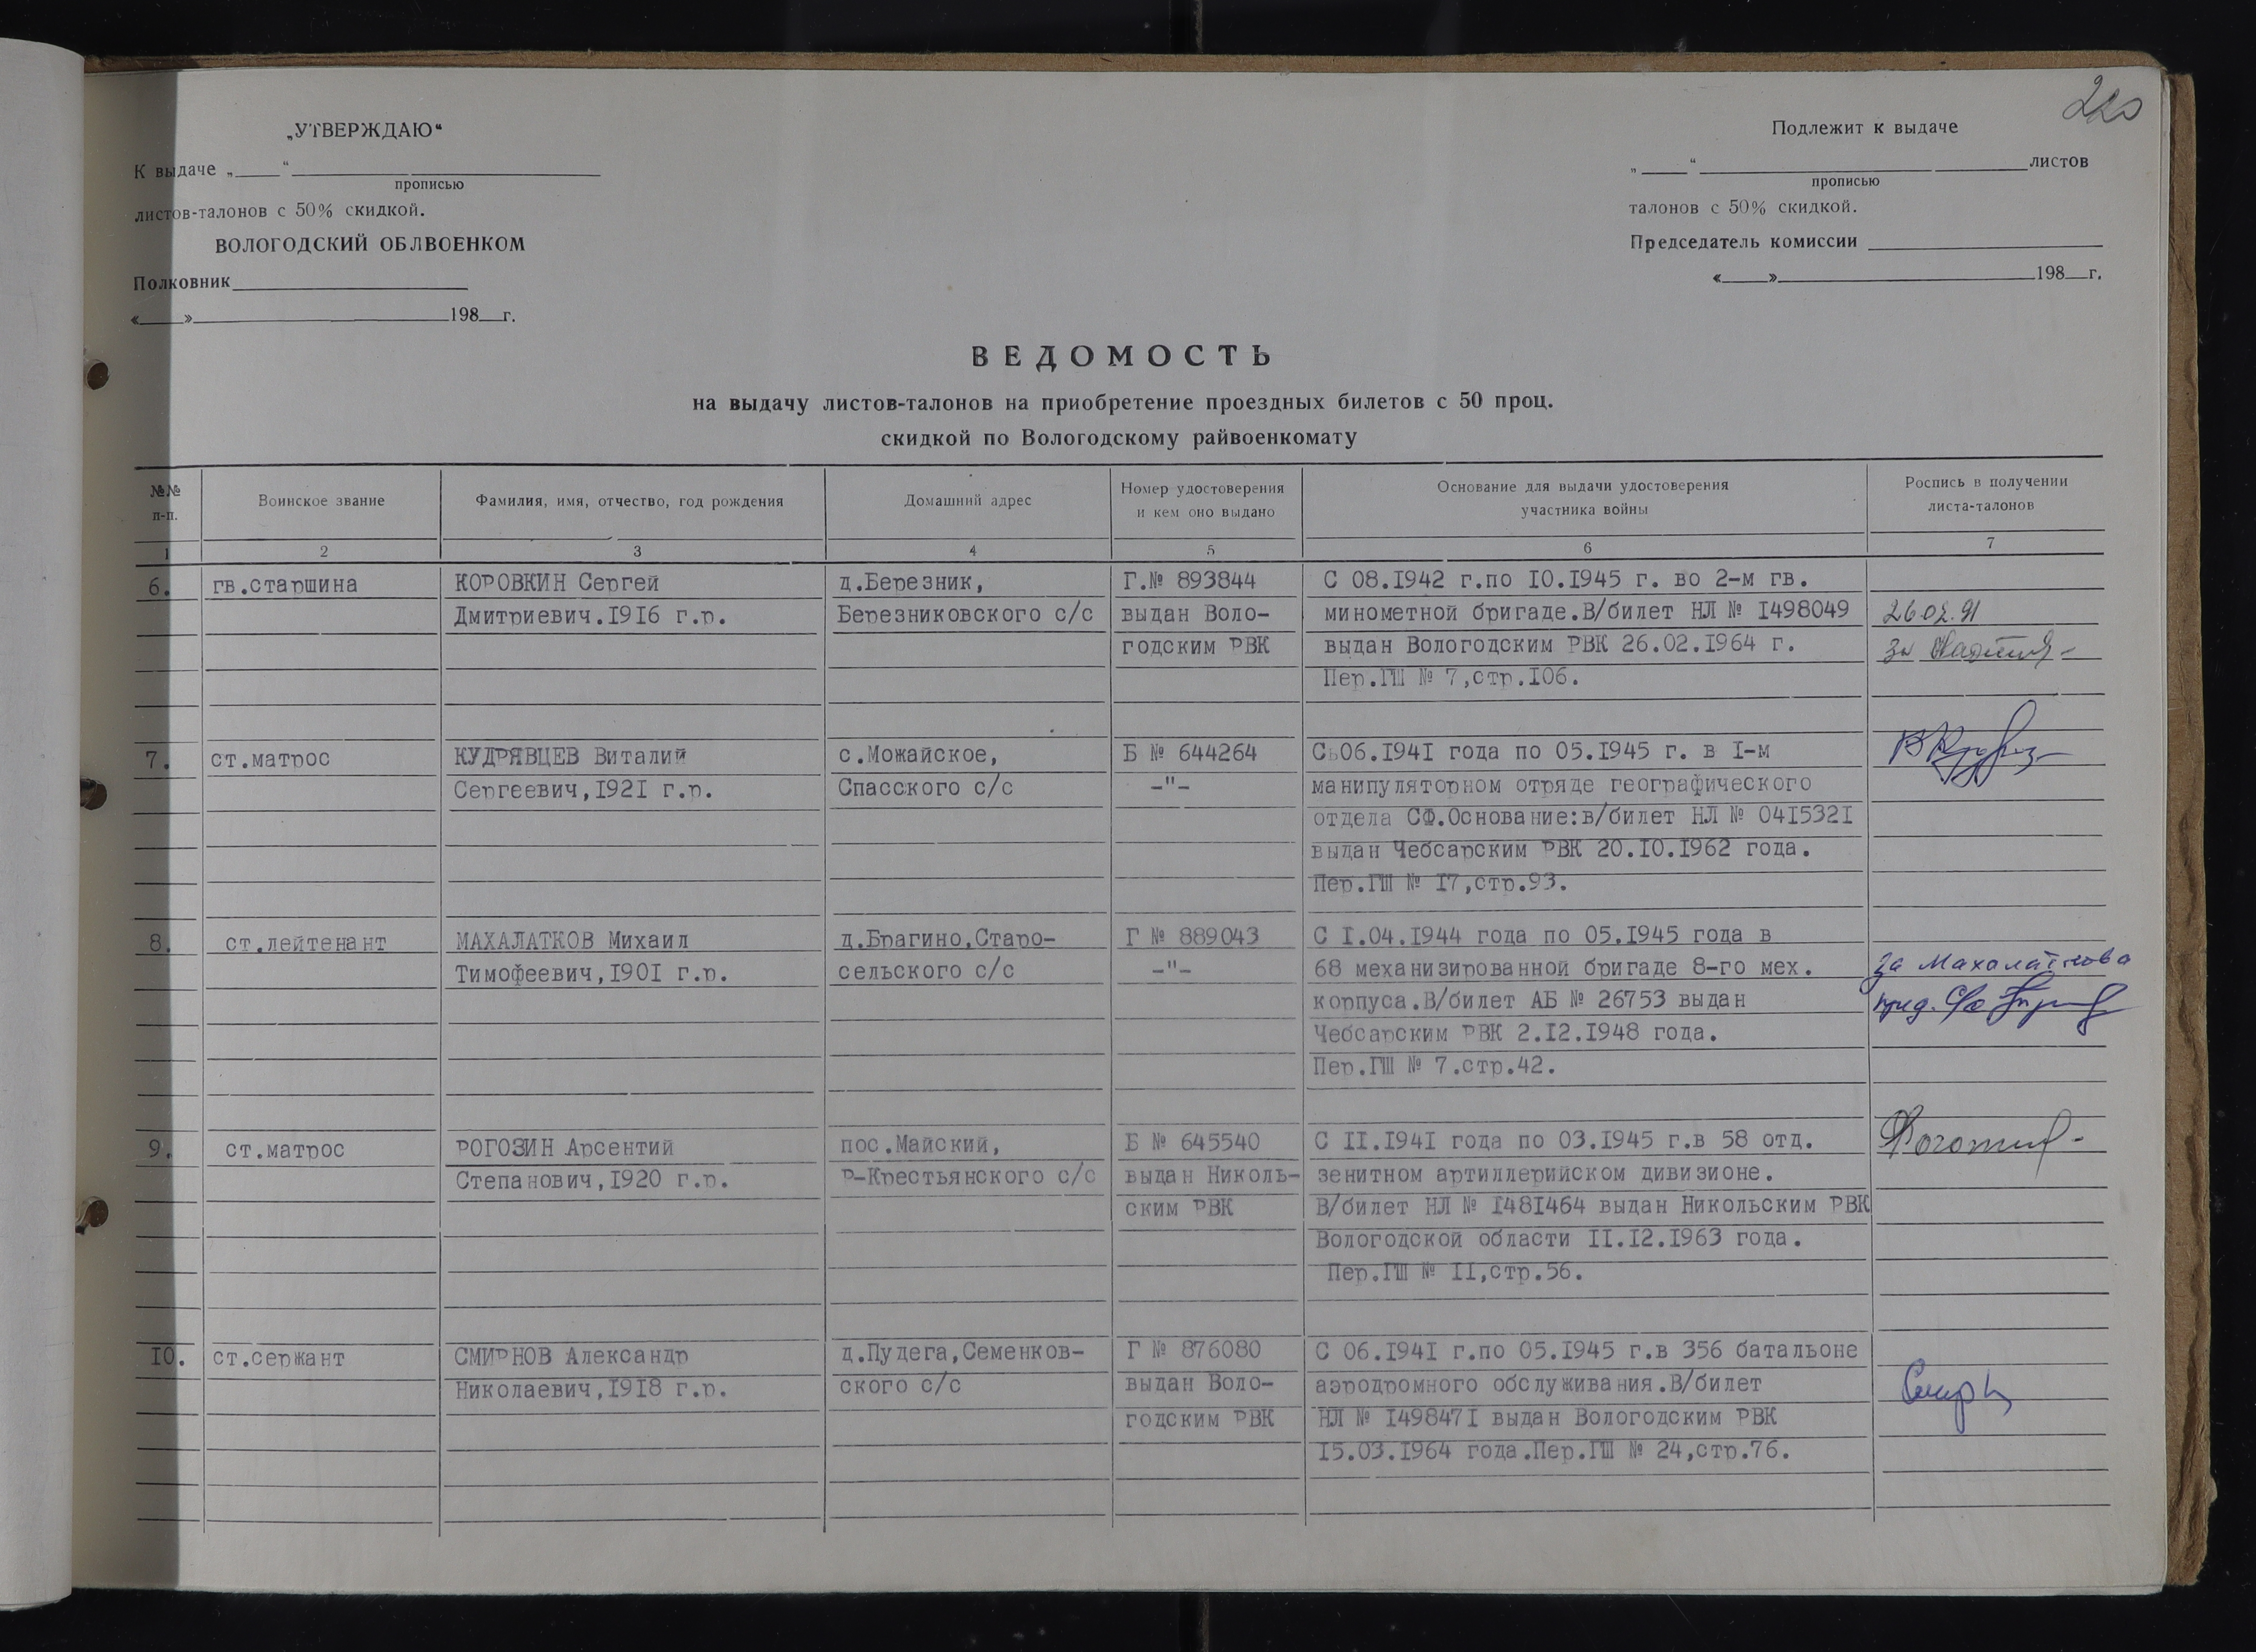 220
„УТВЕРЖДАЮ“
К выдаче „____“ ____________
прописью
листов-талонов с 50% скидкой.
ВОЛОГОДСКИЙ ОБЛВОЕНКОМ
Полковник____________
«____»____________198__г.
Подлежит к выдаче
„____“ ____________листов
прописью
талонов с 50% скидкой.
Председатель комиссии ____________
«____»____________198__г.
ВЕДОМОСТЬ
на выдачу листов-талонов на приобретение проездных билетов с 50 проц.
скидкой по Вологодскому райвоенкомату
№№ п-п.
Воинское звание
Фамилия, имя, отчество, год рождения
Домашний адрес
Номер удостоверения
и кем оно выдано
Основание для выдачи удостоверения
участника войны
Роспись в получении
листа-талонов
1 2 3 4 5 6 7
6. гв.старшина КОРОВКИН Сергей д.Березник, Г.№ 893844 С 08.I942 г.по IO.I945 г. во 2-м гв.
Дмитриевич.I9I6 г.р. Березниковского с/с выдан Воло- минометной бригаде.В/билет НЛ № I498049 26.02.91
годским РВК выдан Вологодским РВК 26.02.I964 г. за
Пер.ГШ № 7,стр.I06.
7. ст.матрос КУДРЯВЦЕВ Виталий с.Можайское, Б № 644264 Сь06.I94I года по 05.I945 г. в I-м
Сергеевич,I92I г.р. Спасского с/с -"- манипуляторном отряде географического
отдела СФ.Основание:в/билет НЛ № 04I532I
выдан Чебсарским РВК 20.IO.I962 года.
Пер.ГШ № I7,стр.93.
8. ст.лейтенант МАХАЛАТКОВ Михаил д.Брагино,Старо- Г № 889043 С I.04.I944 года по 05.I945 года в
Тимофеевич,I90I г.р. сельского с/с -"- 68 механизированной бригаде 8-го мех. за Махалаткова
корпуса.В/билет АБ № 26753 выдан пред. с/с
Чебсарским РВК 2.I2.I948 года.
Пер.ГШ № 7.стр.42.
9. ст.матрос РОГОЗИН Арсентий пос.Майский, Б № 645540 С II.I94I года по 03.I945 г.в 58 отд.
Степанович,I920 г.р. Р-Крестьянского с/с выдан Николь- зенитном артиллерийском дивизионе.
ским РВК В/билет НЛ № I48I464 выдан Никольским РВК
Вологодской области II.I2.I963 года.
Пер.ГШ № II,стр.56.
IO. ст.сержант СМИРНОВ Александр д.Пудега,Семенков- Г № 876080 С 06.I94I г.по 05.I945 г.в 356 батальоне
Николаевич,I9I8 г.р. ского с/с выдан Воло- аэродромного обслуживания.В/билет
годским РВК НЛ № I49847I выдан Вологодским РВК
I5.03.I964 года.Пер.ГШ № 24,стр.76.